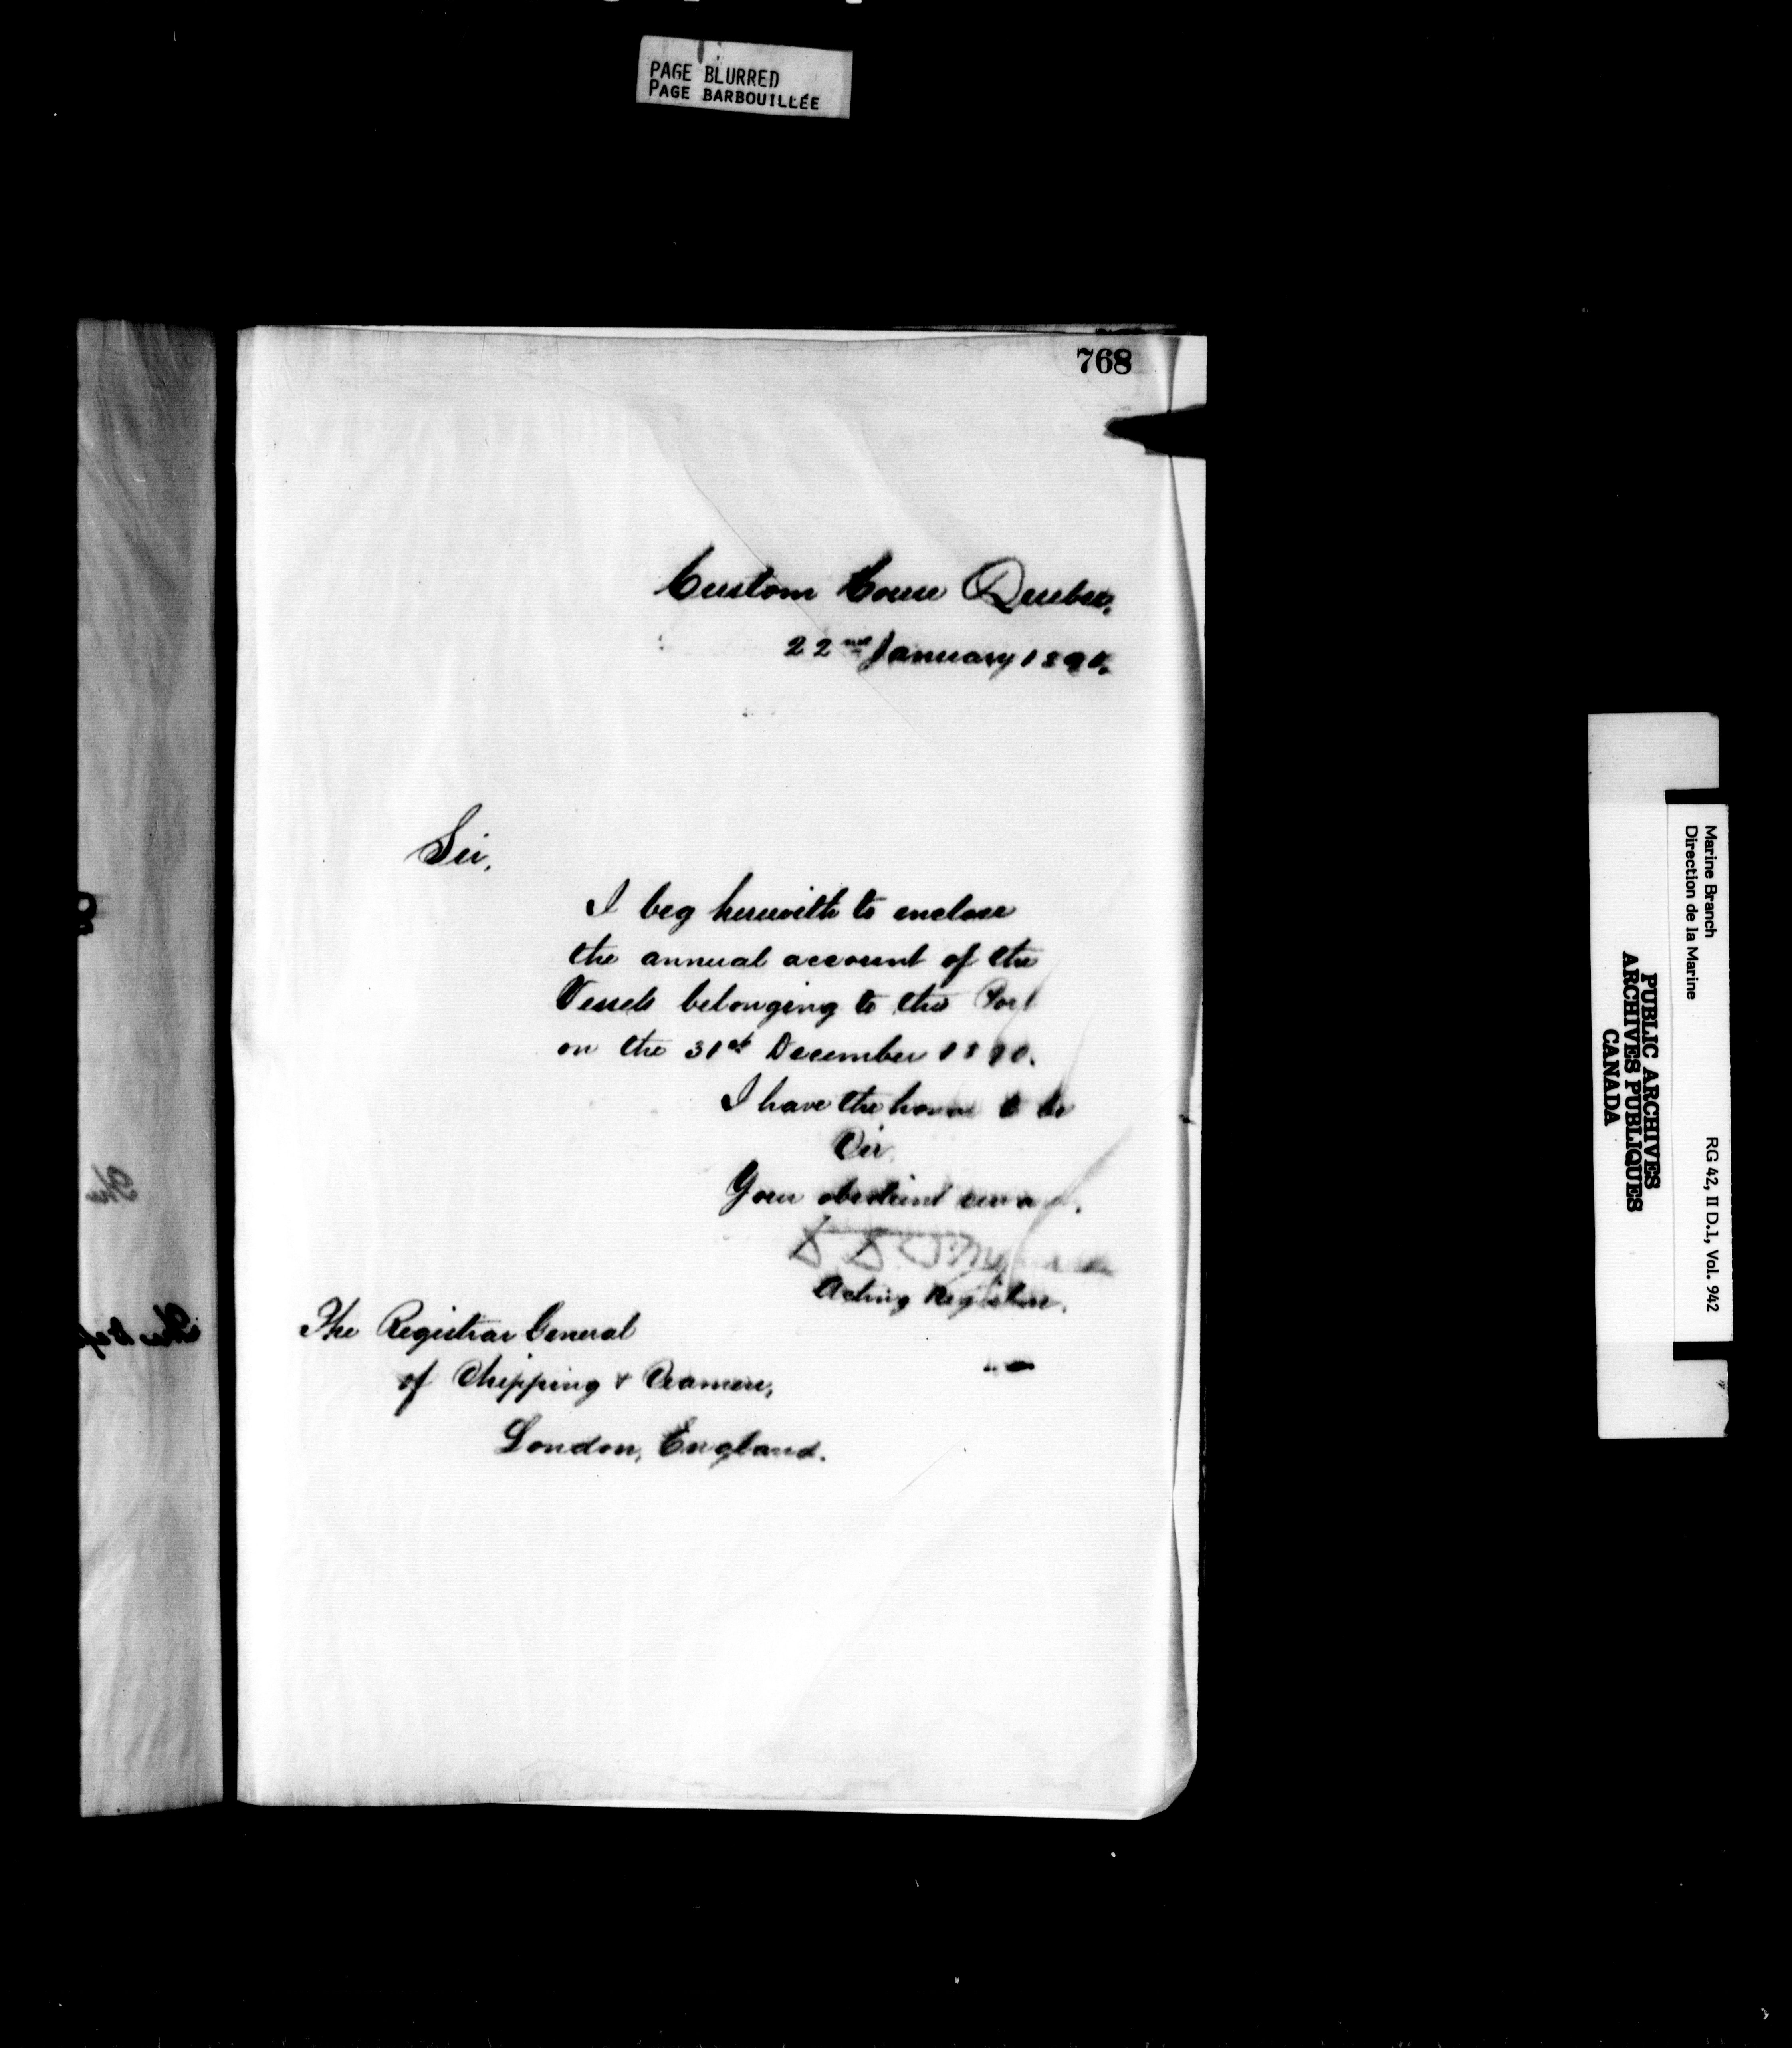 PAGE BLURRED
PAGE BARBOUILLÉE
768
Custom House Quebec,
22nd January 1891.
Sir,
I beg herewith to enclose
the annual account of the
Vessels belonging to this Port
on the 31st December 1890.
I have the honor to be
Sir,
Your obedient servant.
Acting Registrar.
The Registrar General
of Shipping & Seamen,
London, England.
The
Marine Branch
Direction de la Marine
RG 42, II D.1, Vol. 942
PUBLIC ARCHIVES
ARCHIVES PUBLIQUES
CANADA